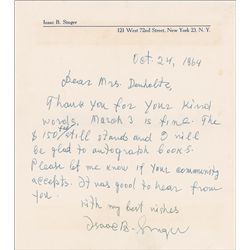 Isaac B. Singer
121 West 72nd Street, New York 23, N. Y.
Oct. 24, 1964
Dear Mrs. Donholtz,
Thank you for your kind
words. March 3 is fine. The
$150 fee still stands and I will
be glad to autograph books.
Please let me know if your community
accepts. It was good to hear from
you.
With my best wishes
Isaac B. Singer